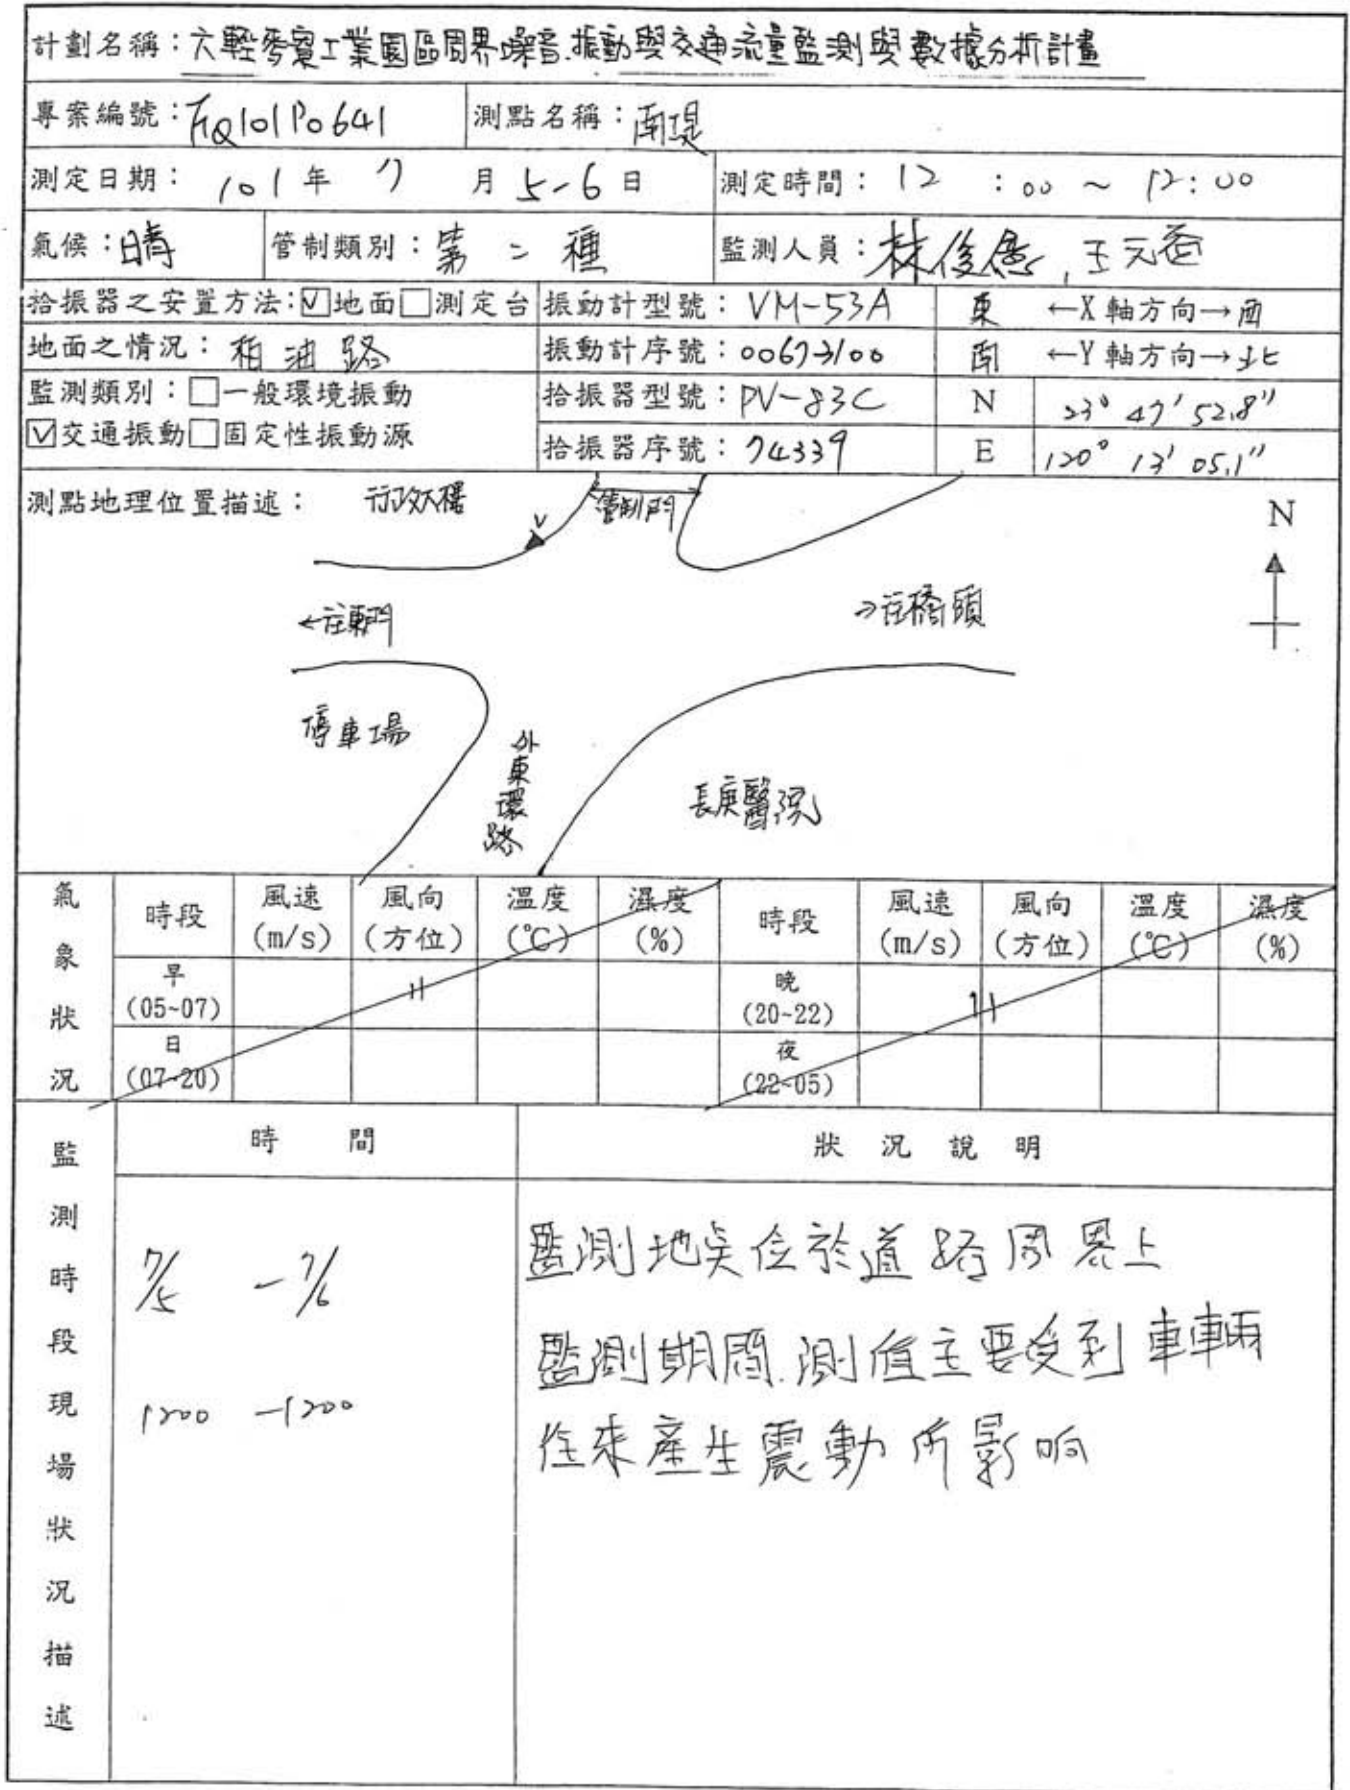 計劃名稱：六輕麥寮工業園區周界噪音.振動與交通流量監測與數據分析計畫
專案編號：FQ101P0641 測點名稱：南堤
測定日期：101年7月5-6日 測定時間：12:00～12:00
氣候：晴 管制類別：第二種 監測人員：林俊,王元
拾振器之安置方法：☑地面□測定台 振動計型號：VM-53A 東 ←X軸方向→西
地面之情況：柏油路 振動計序號：00673100 南 ←Y軸方向→北
監測類別：□一般環境振動 拾振器型號：PV-83C N 23°47'52.8"
☑交通振動□固定性振動源 拾振器序號：74339 E 120°13'05.1"
測點地理位置描述：
行政大樓
管制門
V
N
←往東門
→往橋頭
停車場
外東環路
長庚醫院
氣象狀況
時段 風速(m/s) 風向(方位) 溫度(℃) 濕度(%) 時段 風速(m/s) 風向(方位) 溫度(℃) 濕度(%)
早(05~07) 晚(20~22)
日(07-20) 夜(22-05)
監測時段現場狀況描述
時間 狀況說明
7/5 - 7/6
1200 - 1200
監測地點位於道路周界上
監測期間.測值主要受到車輛
往來產生震動所影响